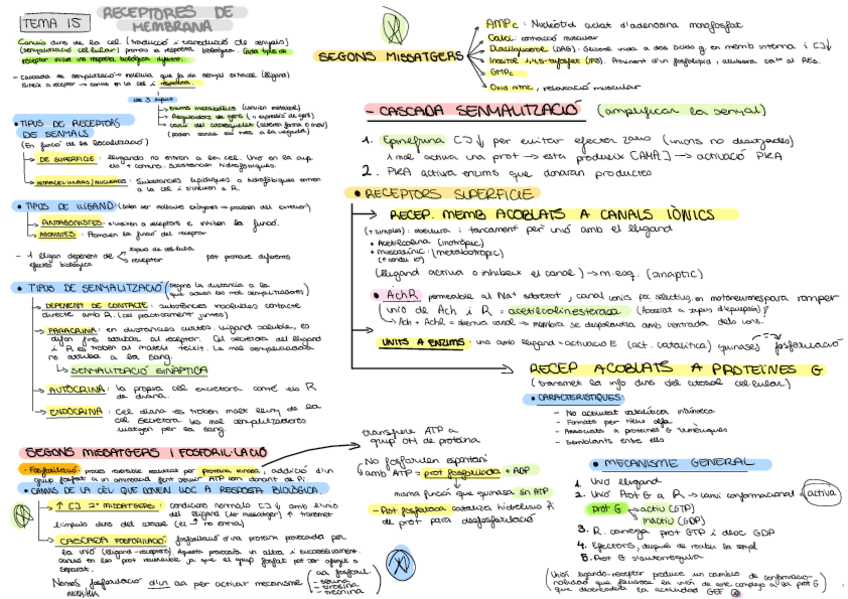 TEMA 15
RECEPTORES DE MEMBRANA
Canvis dins de la cel (traducció i transducció de senyals)
(senyalització cel·lular) promou la resposta biològica. Cada tipus de
receptor inicia una resposta biològica diferent.
→ Cascada de senyalització → molècula que fa de senyal extracel (lligand)
s'uneix a receptor → canvis en la cel i resposta.
de 3 tipus
→ Enzims metabòlics (canvien metabol)
→ Reguladors de gens (↓ expressió de gens)
→ canvi del citoesquelet (alteren forma o mov)
(poden donar els tres a la vegada)
• TIPUS DE RECEPTORS
DE SENYALS
(En funció de la localització)
→ DE SUPERFÍCIE: lligands no entren a la cel. Unió en la sup
els + comuns. Substàncies hidrofíliques.
→ INTRACEL·LULARS/NUCLEARS: Substàncies lipídiques o hidrofòbiques entren
a la cel i s'uneixen a R.
• TIPUS DE LLIGAND: (poden ser molècules exògenes → provenen del exterior)
→ ANTAGONISTES: s'uneixen a receptors e inhibeixen la funció.
→ AGONISTES: Promouen la funció del receptor
- 1 lligand depenent de
tipus de cèl·lula
receptor
pot provocar diferents
efectes biològics
• TIPUS DE SENYALITZACIÓ (segons la distància a la
que actuen les mol senyalitzadores)
→ DEPENENT DE CONTACTE: substàncies no solubles contacte
directe amb R. (cel pràcticament juntes)
→ PARACRINA: en distàncies curtes. Lligand soluble, ha
difon fins arribar al receptor. Cel secretora del lligand
i R es troben al mateix teixit. La mol senyalitzadora
no arriba a la sang.
↳ SENYALITZACIÓ SINÀPTICA
→ AUTOCRINA: la pròpia cel excretora conté els R
de diana.
→ ENDOCRINA: Cel diana es troben molt lluny de la
cel secretora. Les mol senyalitzadores
viatgen per la sang.
SEGONS MISSATGERS I FOSFORIL·LACIÓ
• Fosforilació: procés reversible catalitzat per proteïna kinasa, addició d'un
grup fosfat a un aminoàcid fent servir ATP com donant de Pi.
• CANVIS DE LA CEL QUE DONEN LLOC A RESPOSTA BIOLÒGICA.
→ ↑ [ ] 2ns MISSATGERS: condicions normals [ ]↓ amb l'unió
del lligand (1er missatger) ↑ transmet
l'impuls dins del citosol (el 1er no entra)
→ CASCADA FOSFORILACIÓ: fosforilació d'una proteïna provocada per
la unió (lligand-receptor). Aquesta provocarà un altre i successivament.
Canvis en les prot reversible ja que el grup fosfat pot ser afegit o
separat.
Només fosforilació d'un aa per activar mecanisme
aa fosforil.
- serina
- tirosina
- treonina
transfereix ATP a
grup OH de proteïna
No fosforilen espontani
↳ amb ATP = prot fosforilada + ADP
mateixa funció que quinasa sin ATP
- Prot fosfatasa catalitza hidròlisi R
de prot per desfosforilació
SEGONS MISSATGERS
→ AMPc: Nucleòtid ciclat d'adenosina monofosfat
→ Calci: contracció muscular
→ Diacilglicerol (DAG): Glicerol unida a dos àcids g en memb interna i [ ]↓
→ Inositol 1,4,5-trifosfat (IP3). Provinent d'un fosfolípid, allibera Ca2+ al RE.
→ GMPc
→ Òxid nítric, relaxació muscular
- CASCADA SENYALITZACIÓ (amplificar la senyal)
1. Epinefrina [ ]↓ per evitar efectes zauo (unions no desitjades)
1 mol activa una prot → esta produeix [AMPc] → activació PKA
2. PKA activa enzims que donaran productes
• RECEPTORS SUPERFÍCIE
→ RECEP. MEMB ACOBLATS A CANALS IÒNICS
(+ simples) → obertura i tancament per unió amb el lligand
• Acetilcolina (inotròpic)
• muscarínic (metabotropic)
(lligand activa o inhibeix el canal) → m. eaq. (sinàptic)
• AchR permeable al Na+ sobretot, canal iònic poc selectiu, en motoneurones para romper
unió de Ach i R = acetilcolinesterasa
↳ Ach + AchR = obertura canal → membrana es despolaritza amb l'entrada dels ions.
→ UNITS A ENZIMS: unió amb lligand → activació E (act. catalítica) quinases → fosforilació
→ RECEP ACOBLATS A PROTEÏNES G
(transmet la info dins del citosol cel·lular)
• CARACTERÍSTIQUES:
- No activitat catalítica intrínseca
- Formats per hèlix alfa
- Associats a proteïnes G trimèriques
- Semblants entre ells
• MECANISME GENERAL
1. Unió lligand
2. Unió Prot G a R → canvi conformacional = activa
prot G → actiu (GTP)
inactiu (GDP)
3. R. carrega prot GTP i deixa GDP
4. Efectors, després de rebre la senyal
5. Prot G s'autorregula
(Unió ligando-receptor produce un cambio de conformación
que desencadena la actividad GEF